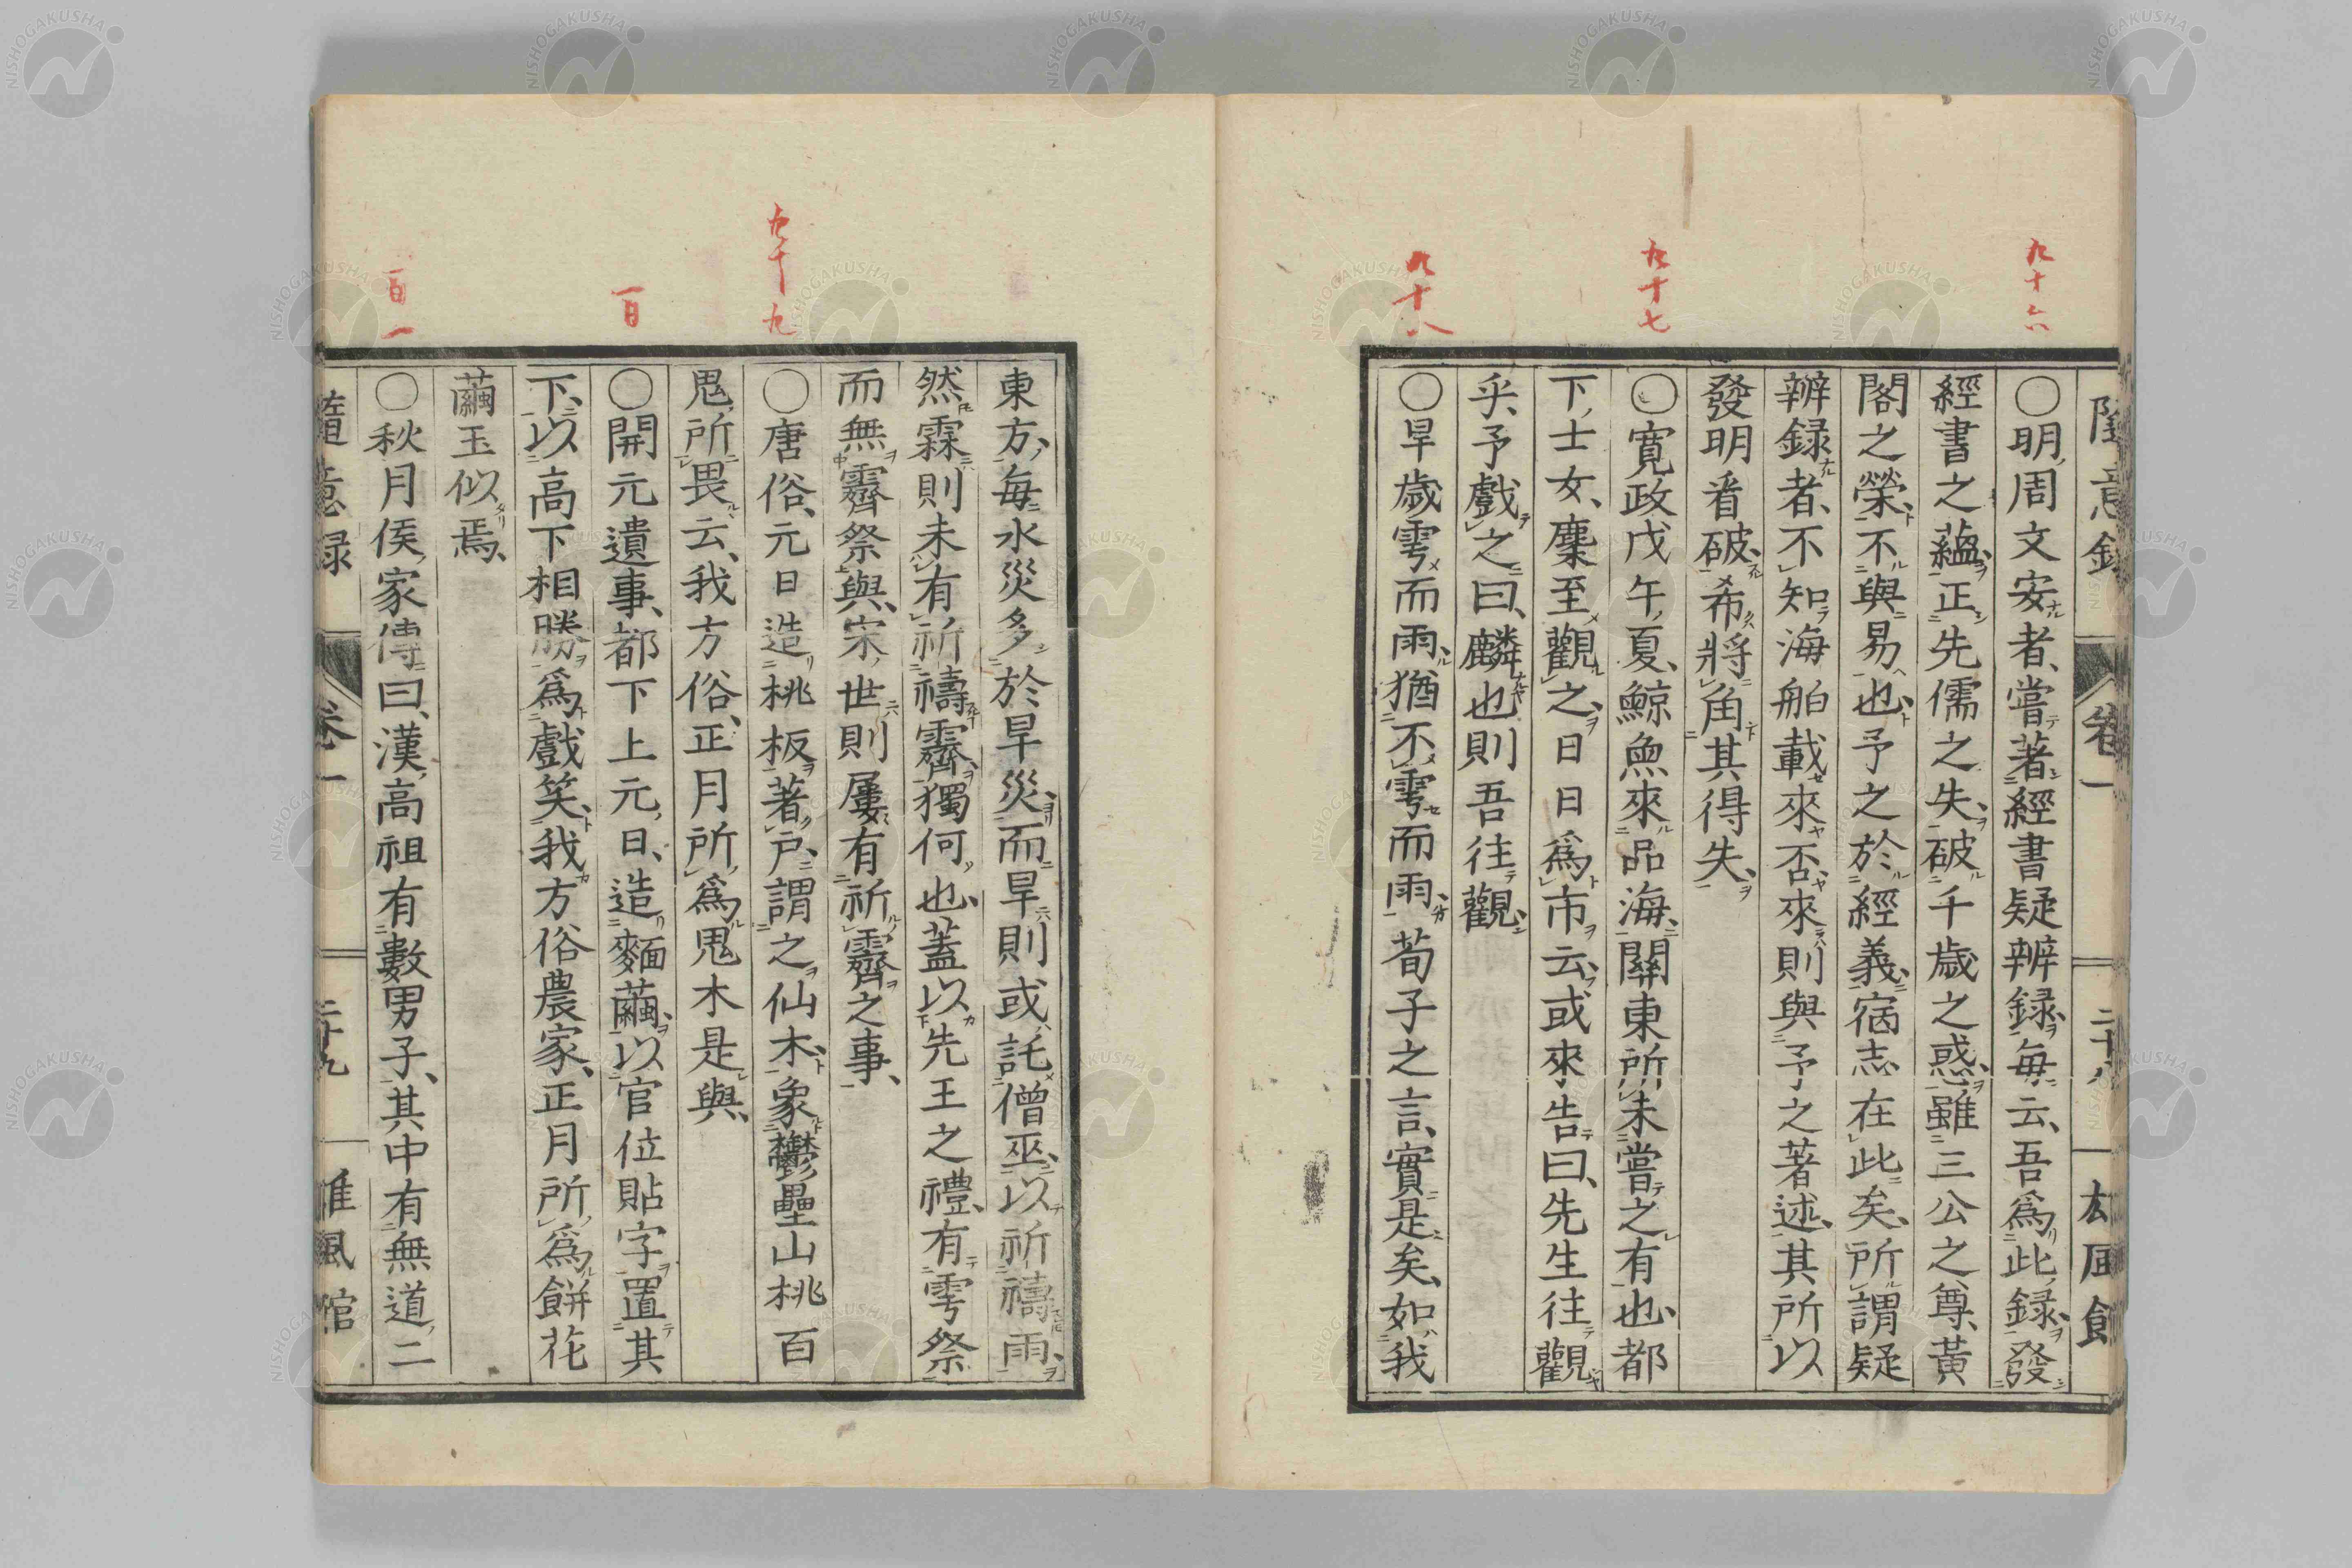 九十六
九十七
九十八
○明周文安者、嘗著經書疑辨録、毎云、吾爲此録、發
經書之蘊、正先儒之失、破千歳之惑、雖三公之尊、黃
閣之榮、不與易也、予之於經義、宿志在此矣、所謂疑
辨録者、不知海舶載來否、來則與予之著述、其所以
發明看破、希將角其得失、
○寛政戊午、夏、鯨魚來品海、關東所未嘗之有也、都
下、士女、麇至觀之、日日爲市云、或來告曰、先生往觀
乎、予戲之曰、麟也則吾往觀、
○旱歳雩而雨、猶不雩而雨、荀子之言、實是矣、如我
九十九
一百
百一
東方、毎水災多於旱災、而旱則或託僧巫、以祈禱雨、
然霖則未有祈禱霽、獨何也、蓋以先王之禮、有雩祭
而無霽祭與、宋世則屢有祈霽之事、
○唐俗、元日造桃板著戸、謂之仙木、木象鬱壘山桃百
鬼所畏云、我方俗、正月所爲鬼木是與、
○開元遺事、都下上元日、造麵繭、以官位貼字置其
下、以高下相勝爲戲笑、我方俗農家、正月所爲餅花
繭玉似焉、
○秋月侯家傳曰、漢高祖有數男子、其中有無道二
隨意録
卷一
二十九
雄風館
NISHOGAKUSHA